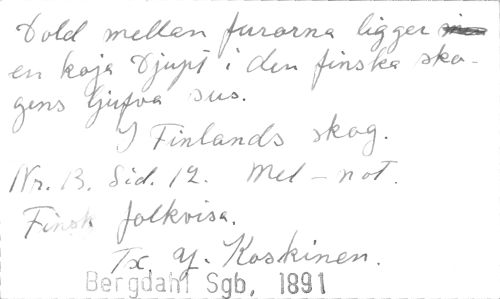 Dold mellan furorna ligger
en koja Djupt i den finska sko-
gens ljufva sus.
I Finlands skog.
Nr. 13. Sid. 12. Mel-not.
Finsk folkvisa.
Tx Y. Koskinen.
Bergdahl Sgb, 1891